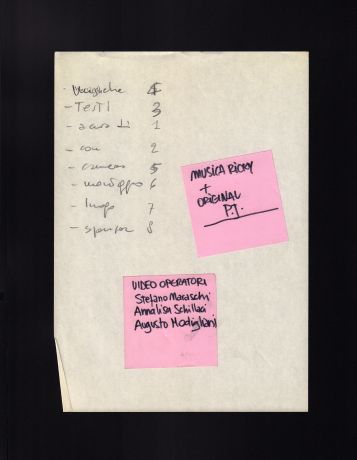 - Musiche 4
- TESTI 3
- a cura di 1
- con 2
- camera 5
- montaggio 6
- luogo 7
- sponsor 8
MUSICA RICKY
+
ORIGINAL
P.J.
VIDEO OPERATORI
Stefano Maraschi
Annalisa Schillaci
Augusto Modigliani